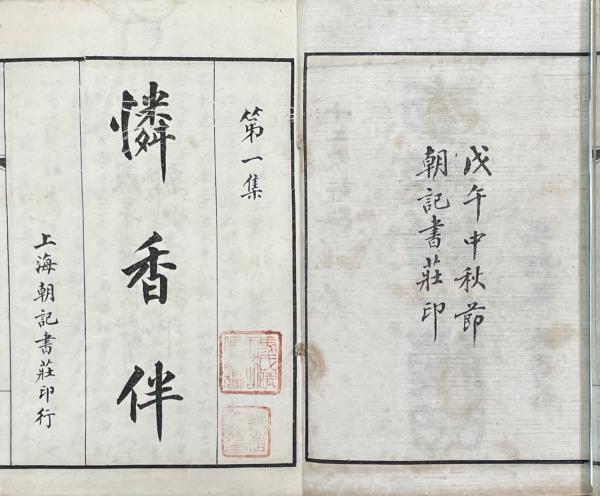 戊午中秋節
朝記書莊印
第一集
憐香伴
上海朝記書莊印行